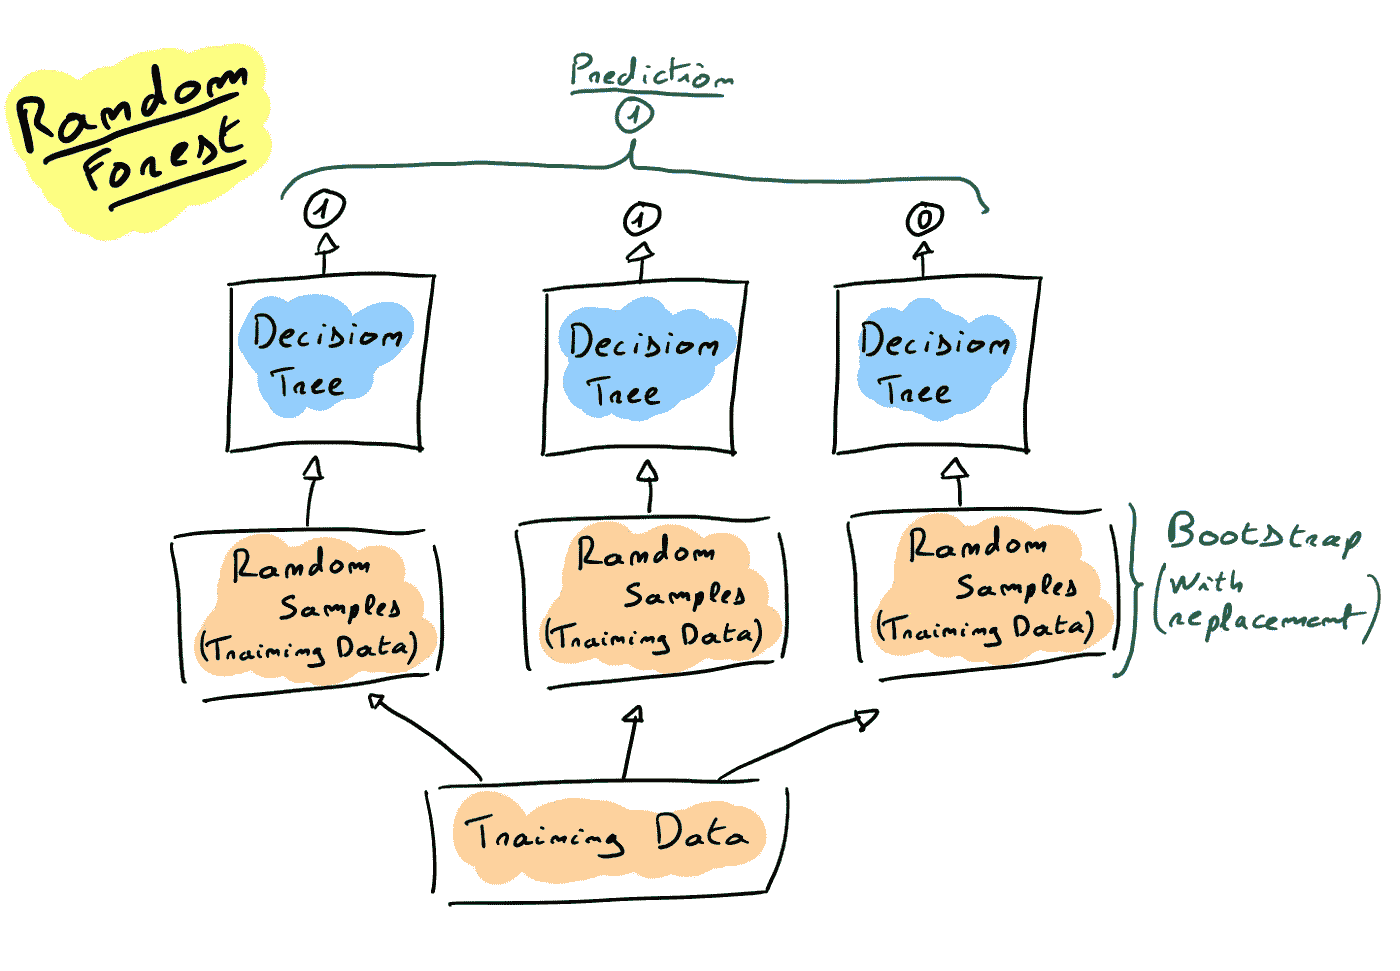 Random
Forest
Prediction
1
1
1
0
Decision
Tree
Decision
Tree
Decision
Tree
Random
Samples
(Training Data)
Random
Samples
(Training Data)
Random
Samples
(Training Data)
Bootstrap
(with
replacement)
Training Data